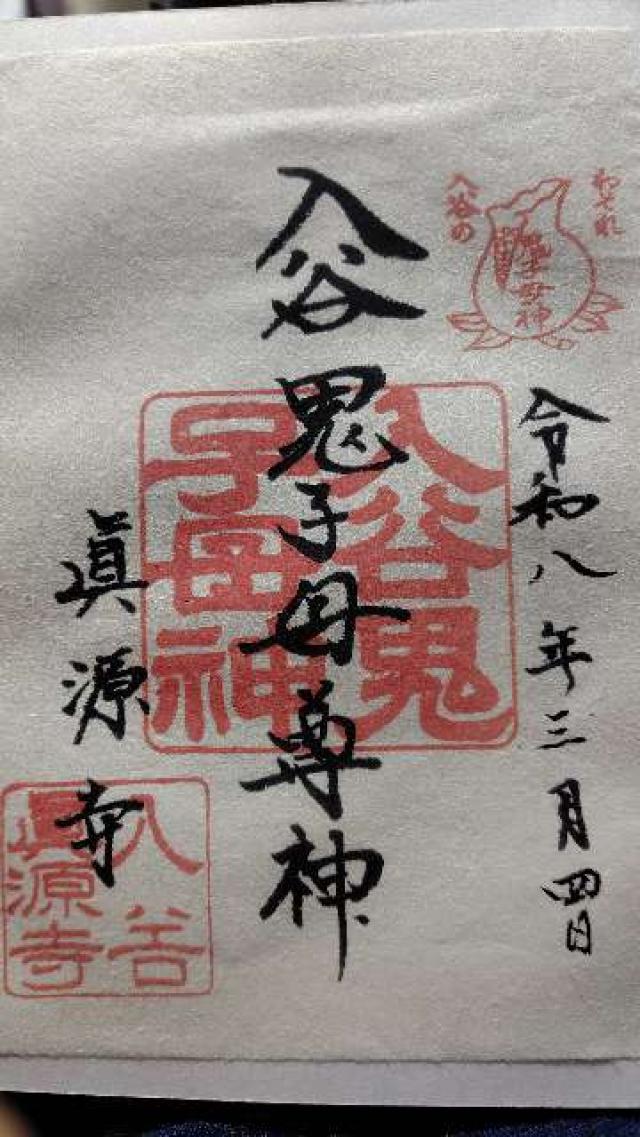 おそれ
入谷の
鬼子母神
令和八年三月四日
入谷鬼子母尊神
入谷鬼
子母神
眞源寺
入谷
眞源寺